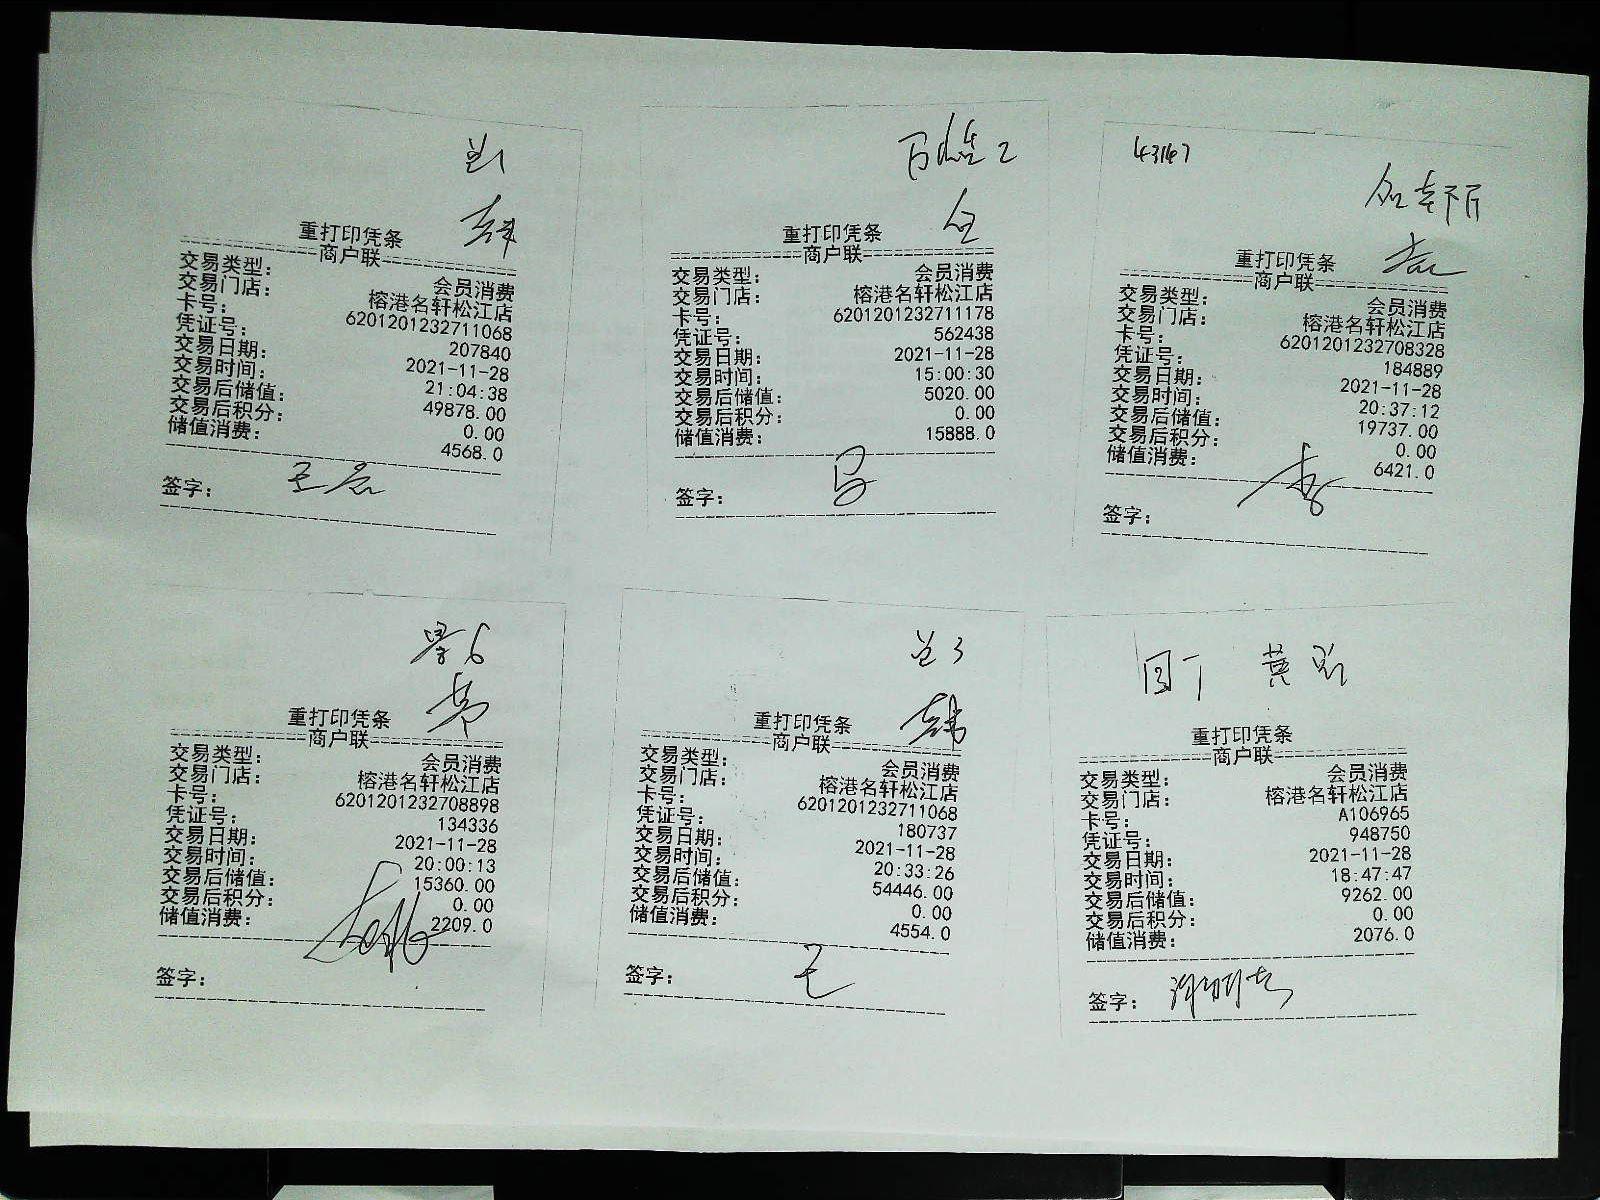 重打印凭条
商户联
交易类型： 会员消费
交易门店： 榕港名轩松江店
卡号： 6201201232711068
凭证号： 207840
交易日期： 2021-11-28
交易时间： 21:04:38
交易后储值： 49878.00
交易后积分： 0.00
储值消费： 4568.0
签字：
2
重打印凭条
商户联
交易类型： 会员消费
交易门店： 榕港名轩松江店
卡号： 6201201232711178
凭证号： 562438
交易日期： 2021-11-28
交易时间： 15:00:30
交易后储值： 5020.00
交易后积分： 0.00
储值消费： 15888.0
签字：
重打印凭条
商户联
交易类型： 会员消费
交易门店： 榕港名轩松江店
卡号： 6201201232708328
凭证号： 184889
交易日期： 2021-11-28
交易时间： 20:37:12
交易后储值： 19737.00
交易后积分： 0.00
储值消费： 6421.0
签字：
6
重打印凭条
商户联
交易类型： 会员消费
交易门店： 榕港名轩松江店
卡号： 6201201232708898
凭证号： 134336
交易日期： 2021-11-28
交易时间： 20:00:13
交易后储值： 15360.00
交易后积分： 0.00
储值消费： 2209.0
签字：
3
重打印凭条
商户联
交易类型： 会员消费
交易门店： 榕港名轩松江店
卡号： 6201201232711068
凭证号： 180737
交易日期： 2021-11-28
交易时间： 20:33:26
交易后储值： 54446.00
交易后积分： 0.00
储值消费： 4554.0
签字： 王
重打印凭条
商户联
交易类型： 会员消费
交易门店： 榕港名轩松江店
卡号： A106965
凭证号： 948750
交易日期： 2021-11-28
交易时间： 18:47:47
交易后储值： 9262.00
交易后积分： 0.00
储值消费： 2076.0
签字：